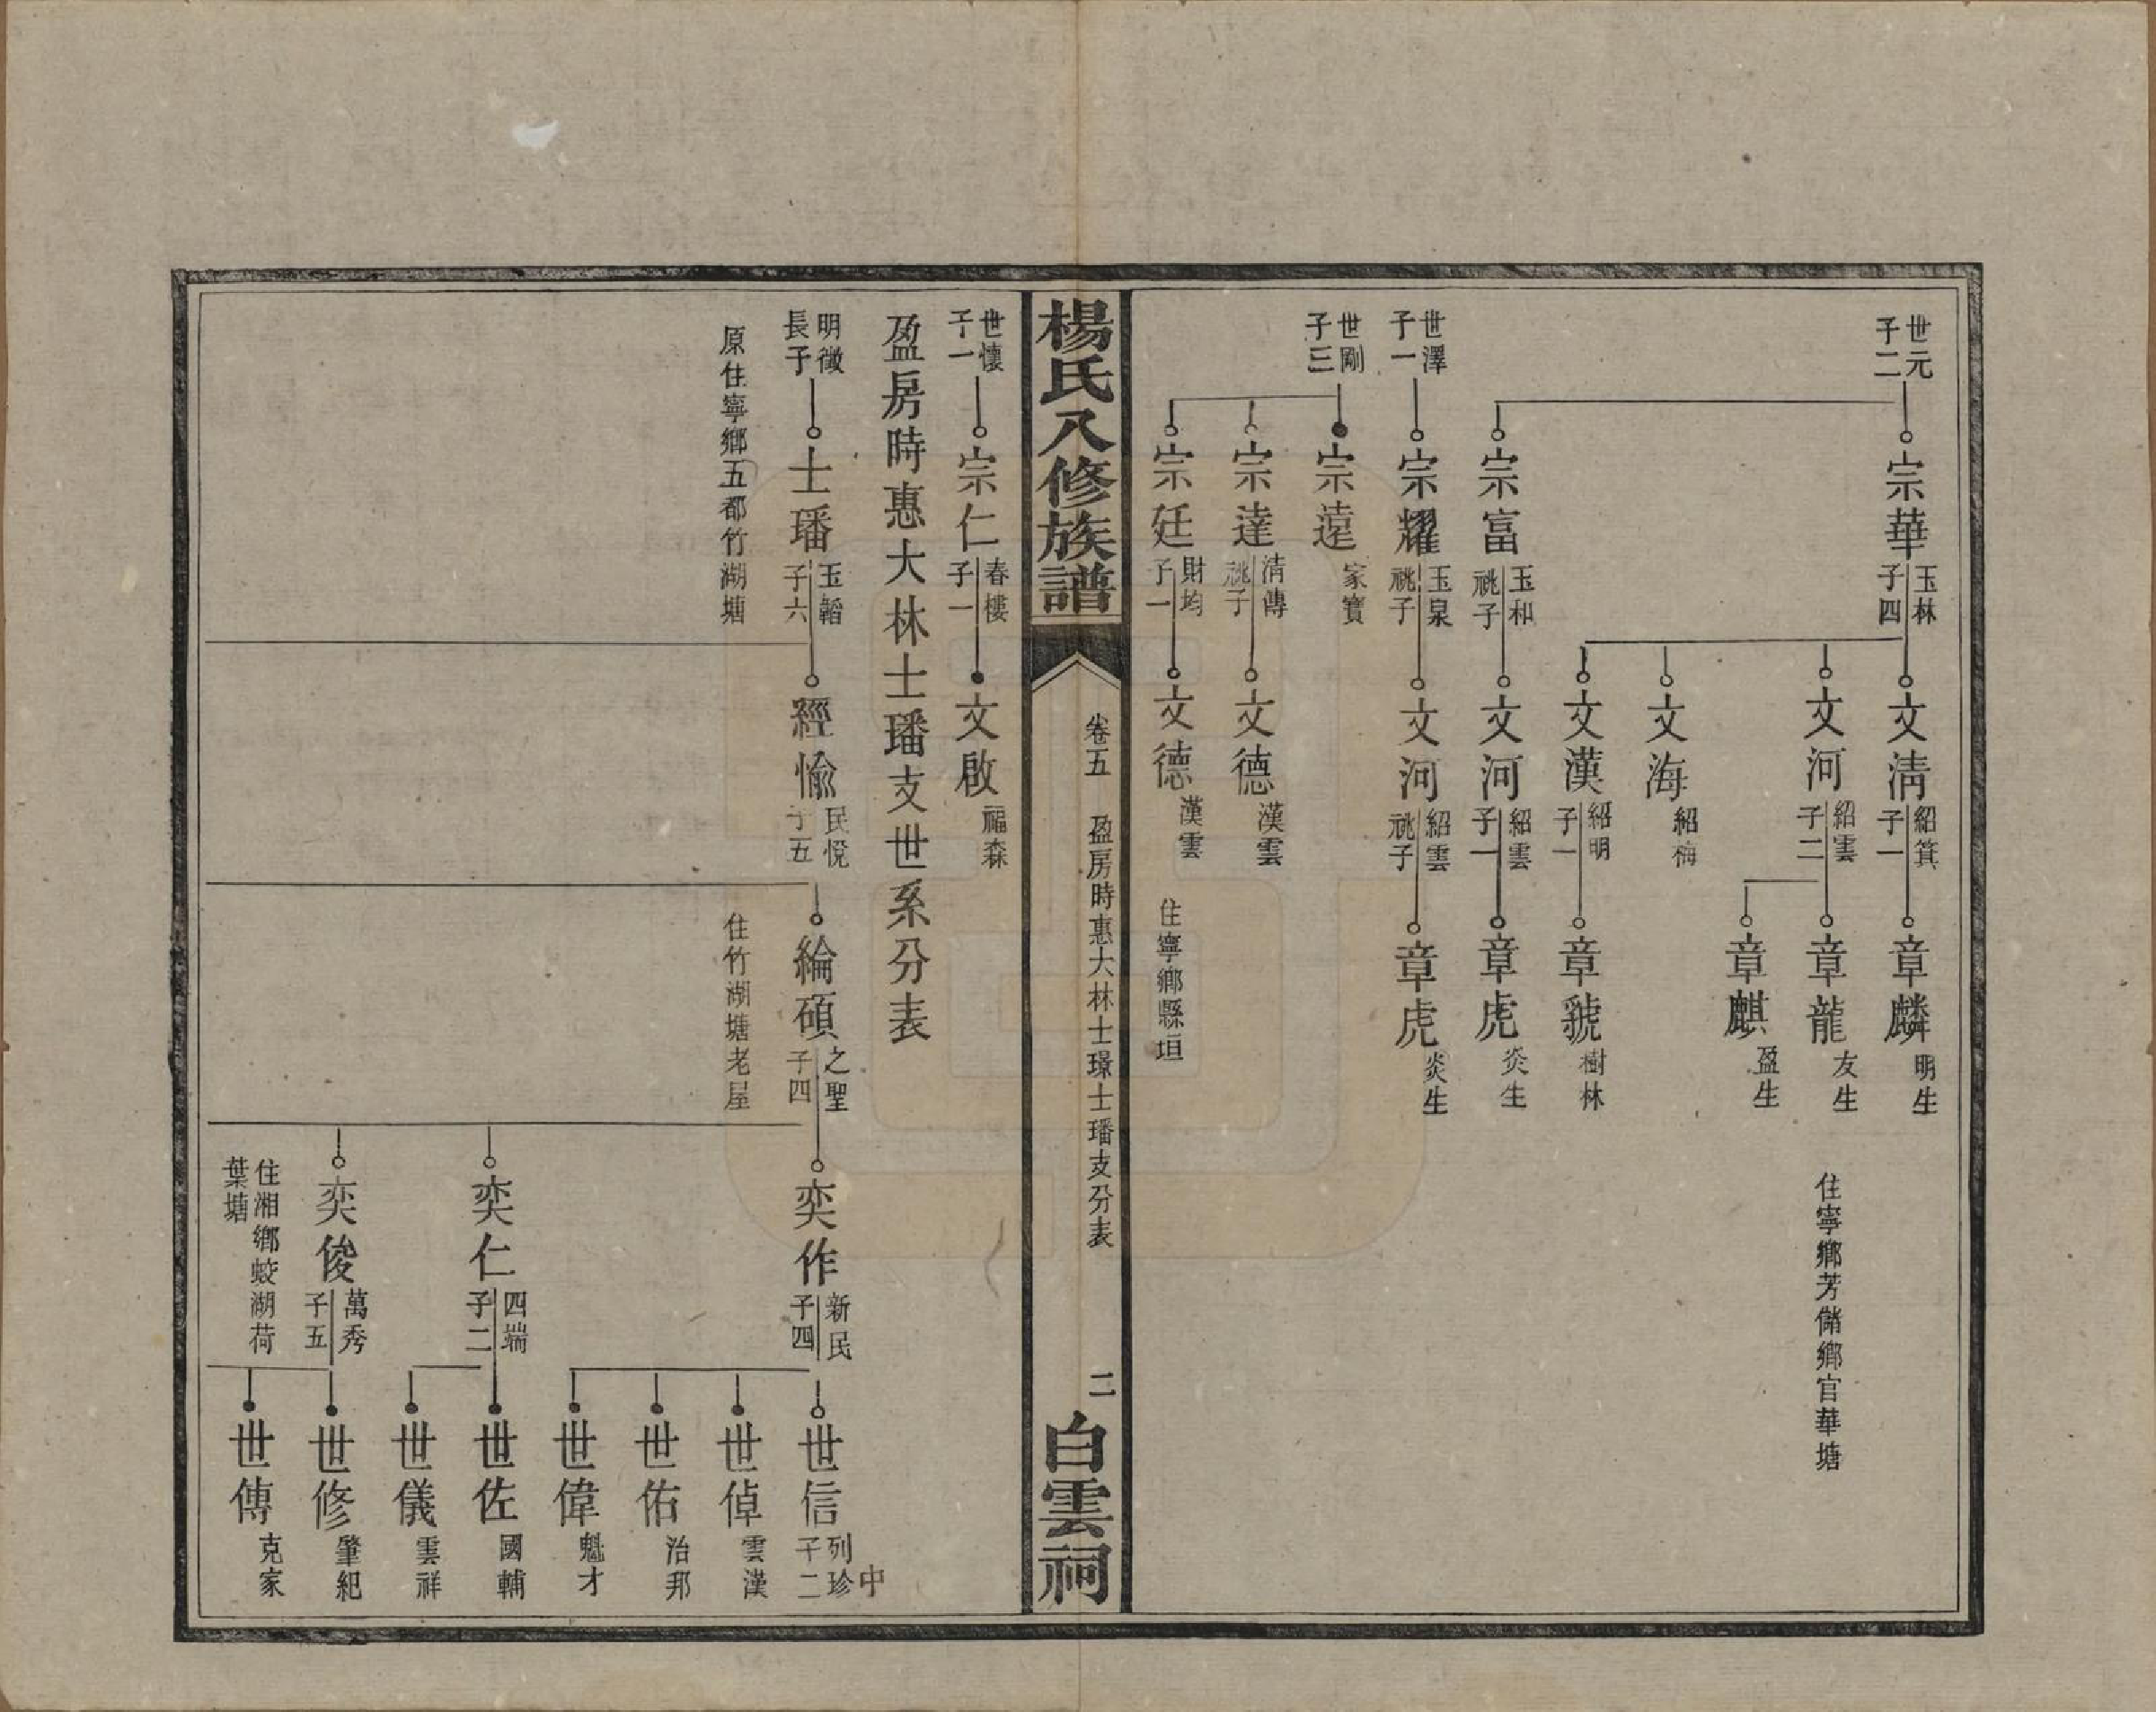 世元
子二
宗華
玉林
子四
文淸
紹箕
子一
章麟
明生
文河
紹雲
子二
章龍
友生
章麒
盈生
住寧鄉芳儲鄉官華塘
文海
紹梅
文漢
紹明
子一
章號
樹林
宗富
玉和
祧子
文河
紹雲
子一
章虎
炎生
世澤
子一
宗耀
玉泉
祧子
文河
紹雲
祧子
章虎
炎生
世剛
子三
宗遠
家寶
宗達
清傳
祧子
文德
漢雲
宗廷
財均
子一
文德
漢雲
住寧鄉縣垣
楊氏八修族譜
卷五
盈房時惠大林士璟士璠支分表
二
白雲祠
世懷
子一
宗仁
春樓
子一
文啟
福森
盈房時惠大林士璠支世系分表
明徵
長子
士璠
玉韜
子六
原住寧鄉五都竹湖塘
經愉
民悅
子五
綸碩
之聖
子四
住竹湖塘老屋
奕作
新民
子四
世信
列珍
子二
中
世倬
雲漢
世佑
治邦
世偉
魁才
奕仁
四端
子二
世佐
國輔
世儀
雲祥
奕俊
萬秀
子五
住湘鄉蛟湖荷
葉塘
世修
肇紀
世傳
克家